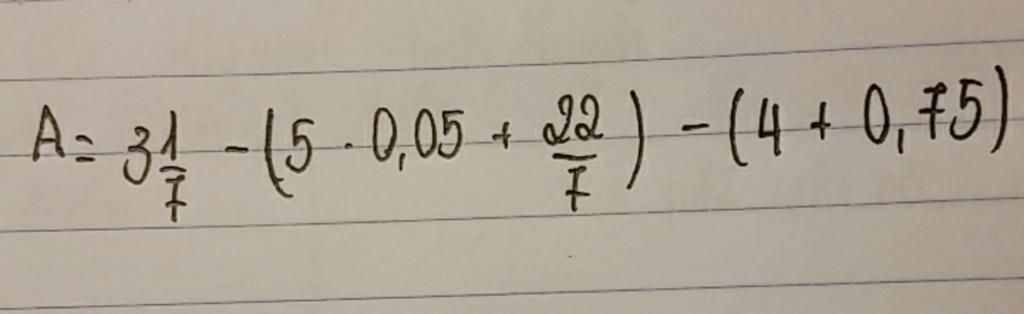 A = 3 1/7 - (5 . 0,05 + 22/7) - (4 + 0,75)